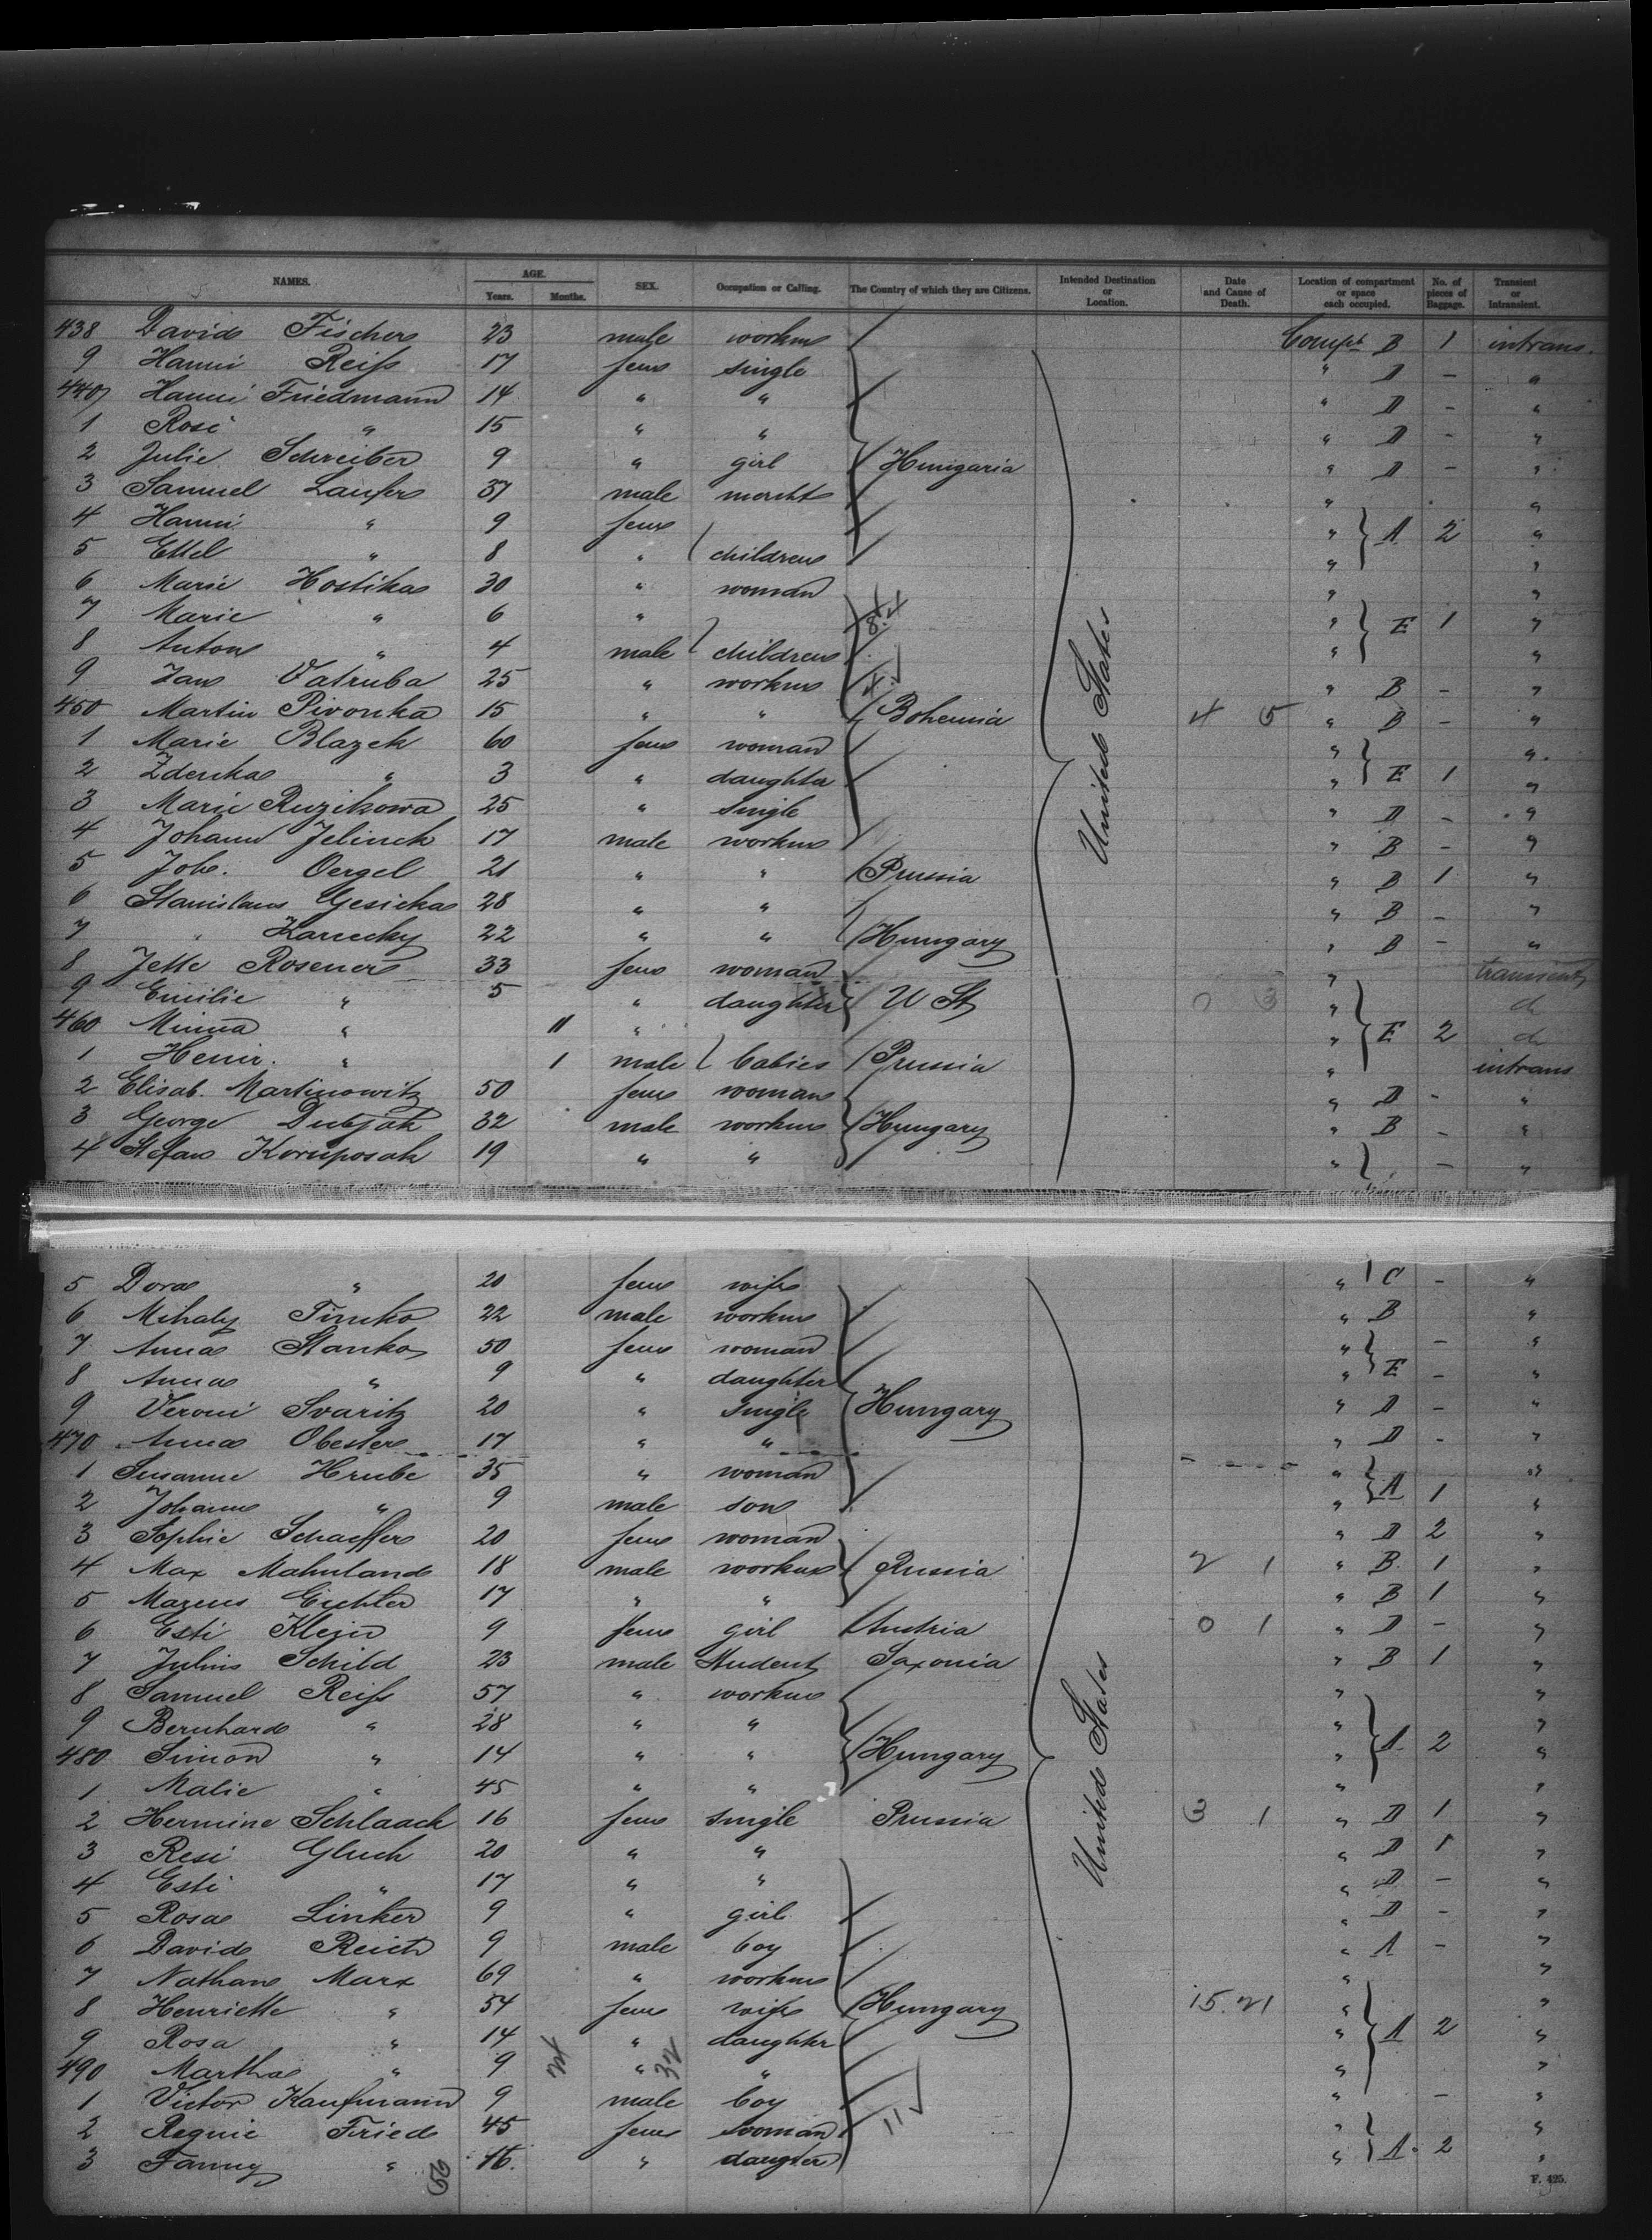 NAMES. AGE. Years. Months. SEX. Occupation or Calling. The Country of which they are Citizens. Intended Destination or Location. Date and Cause of Death. Location of compartment or space each occupied. No. of pieces of Baggage. Transient or Intransient.
438 David Fischer 23 male workm Compt B 1 intrans.
9 Hanni Reiſs 17 fem single " D - "
440 Hanni Friedmann 14 " " " D - "
1 Rosi " 15 " " " D - "
2 Julie Schreiber 9 " girl Hungaria " D - "
3 Samuel Laufer 37 male mercht " "
4 Hanni " 9 fem " A 2 "
5 Ettel " 8 " children " "
6 Marie Hostika 30 " woman " "
7 Marie " 6 " " E 1 "
8 Anton " 4 male children " "
9 Jan Vatruba 25 " workm " B - "
450 Martin Pivonka 15 " " Bohemia 4 5 " B - "
1 Marie Blazek 60 fem woman " "
2 Zdenka " 3 " daughter " E 1 "
3 Marie Ruzikowa 25 " single " D - "
4 Johann Jelinek 17 male workm " B - "
5 Joh. Oergel 21 " " Prussia " B 1 "
6 Stanislaus Gesicka 28 " " " B - "
7 " 22 " " Hungary " B - "
8 Jette Rosener 33 fem woman " transient
9 Emilie " 5 " daughter U St 0 3 " d
460 Minna " 11 " " E 2 d
1 Henir. " 1 male babies Prussia " intrans
2 Elisab. Martinowitz 50 fem woman " D - "
3 George Dubjak 32 male workm Hungary " B - "
4 Stefan Koruposak 19 " " " - "
5 Dora " 20 fem wife " C - "
6 Mihaly Timko 22 male workm " B "
7 Anna Stanko 50 fem woman " - "
8 Anna " 9 " daughter " E - "
9 Veroni Svaritz 20 " single Hungary " D - "
470 Anna Obester 17 " " " D - "
1 Susanne Hrube 35 " woman " "
2 Johann " 9 male son " A 1 "
3 Sophie Schaeffer 20 fem woman " D 2 "
4 Max Mahnland 18 male workm Russia 2 1 " B 1 "
5 Eichler 17 " " " B 1 "
6 Esti Klein 9 fem girl Austria 0 1 " D - "
7 Julius Schild 23 male Student Saxonia " B 1 "
8 Samuel Reiſs 57 " workm " "
9 Bernhard " 28 " " " "
480 Simon " 14 " " Hungary " A 2 "
1 Malie " 45 " " " "
2 Hermine Schlaack 16 fem single Prussia 3 1 " D 1 "
3 Resi Gluck 20 " " " D 1 "
4 Esti " 17 " " " D - "
5 Rosa Linker 9 " girl " D - "
6 David Reich 9 male boy " A - "
7 Nathan Marx 69 " workm " "
8 Henriette " 54 fem wife Hungary 15. 21 " "
9 Rosa " 14 " daughter " A 2 "
490 Martha " 9 " 32 " " "
1 Victor Kaufmann 9 male boy 11 " - "
2 Regnie Fried 45 fem woman " "
3 Fanny " 16. " daugter " A. 2 "
United States
United States
F. 425.